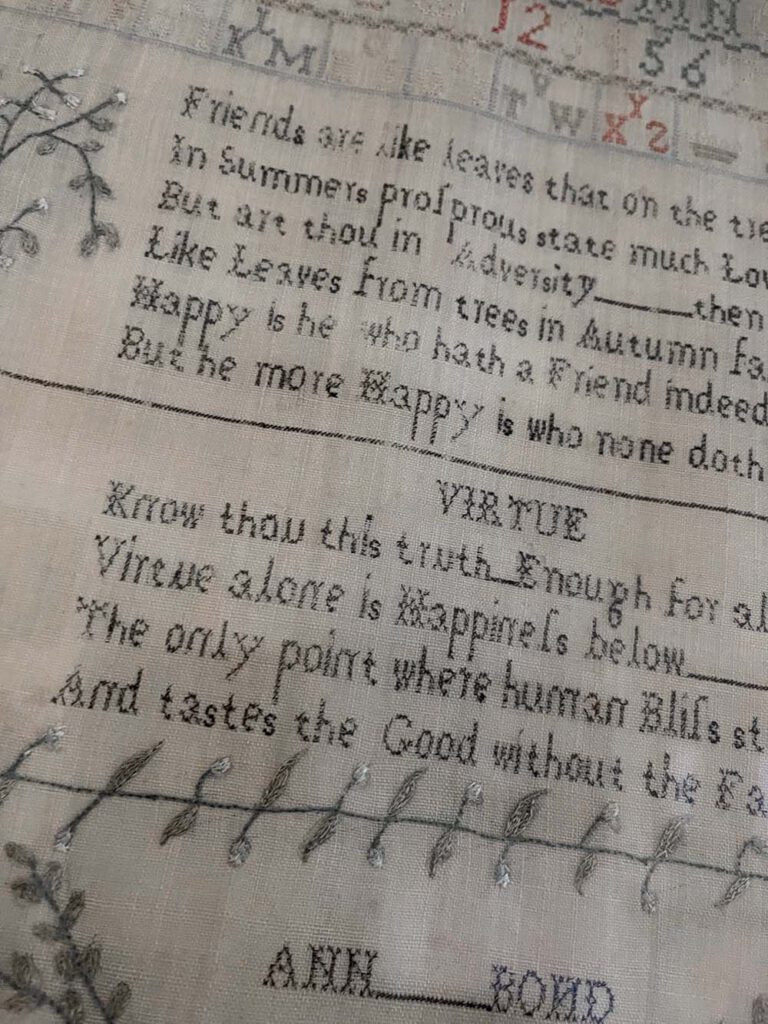 M N
12 56
K L M V W X Y Z
Friends are like leaves that on the tre
In Summers proſprous state much Lov
But art thou in Adversity____then
Like Leaves from trees in Autumn fa
Happy is he who hath a Friend indeed
But he more Happy is who none doth
VIRTUE
Know thou this truth_Enough for al
Virtue alone is Happineſs below____
The only point where human Bliſs st
And tastes the Good without the Fa
ANN____BOND